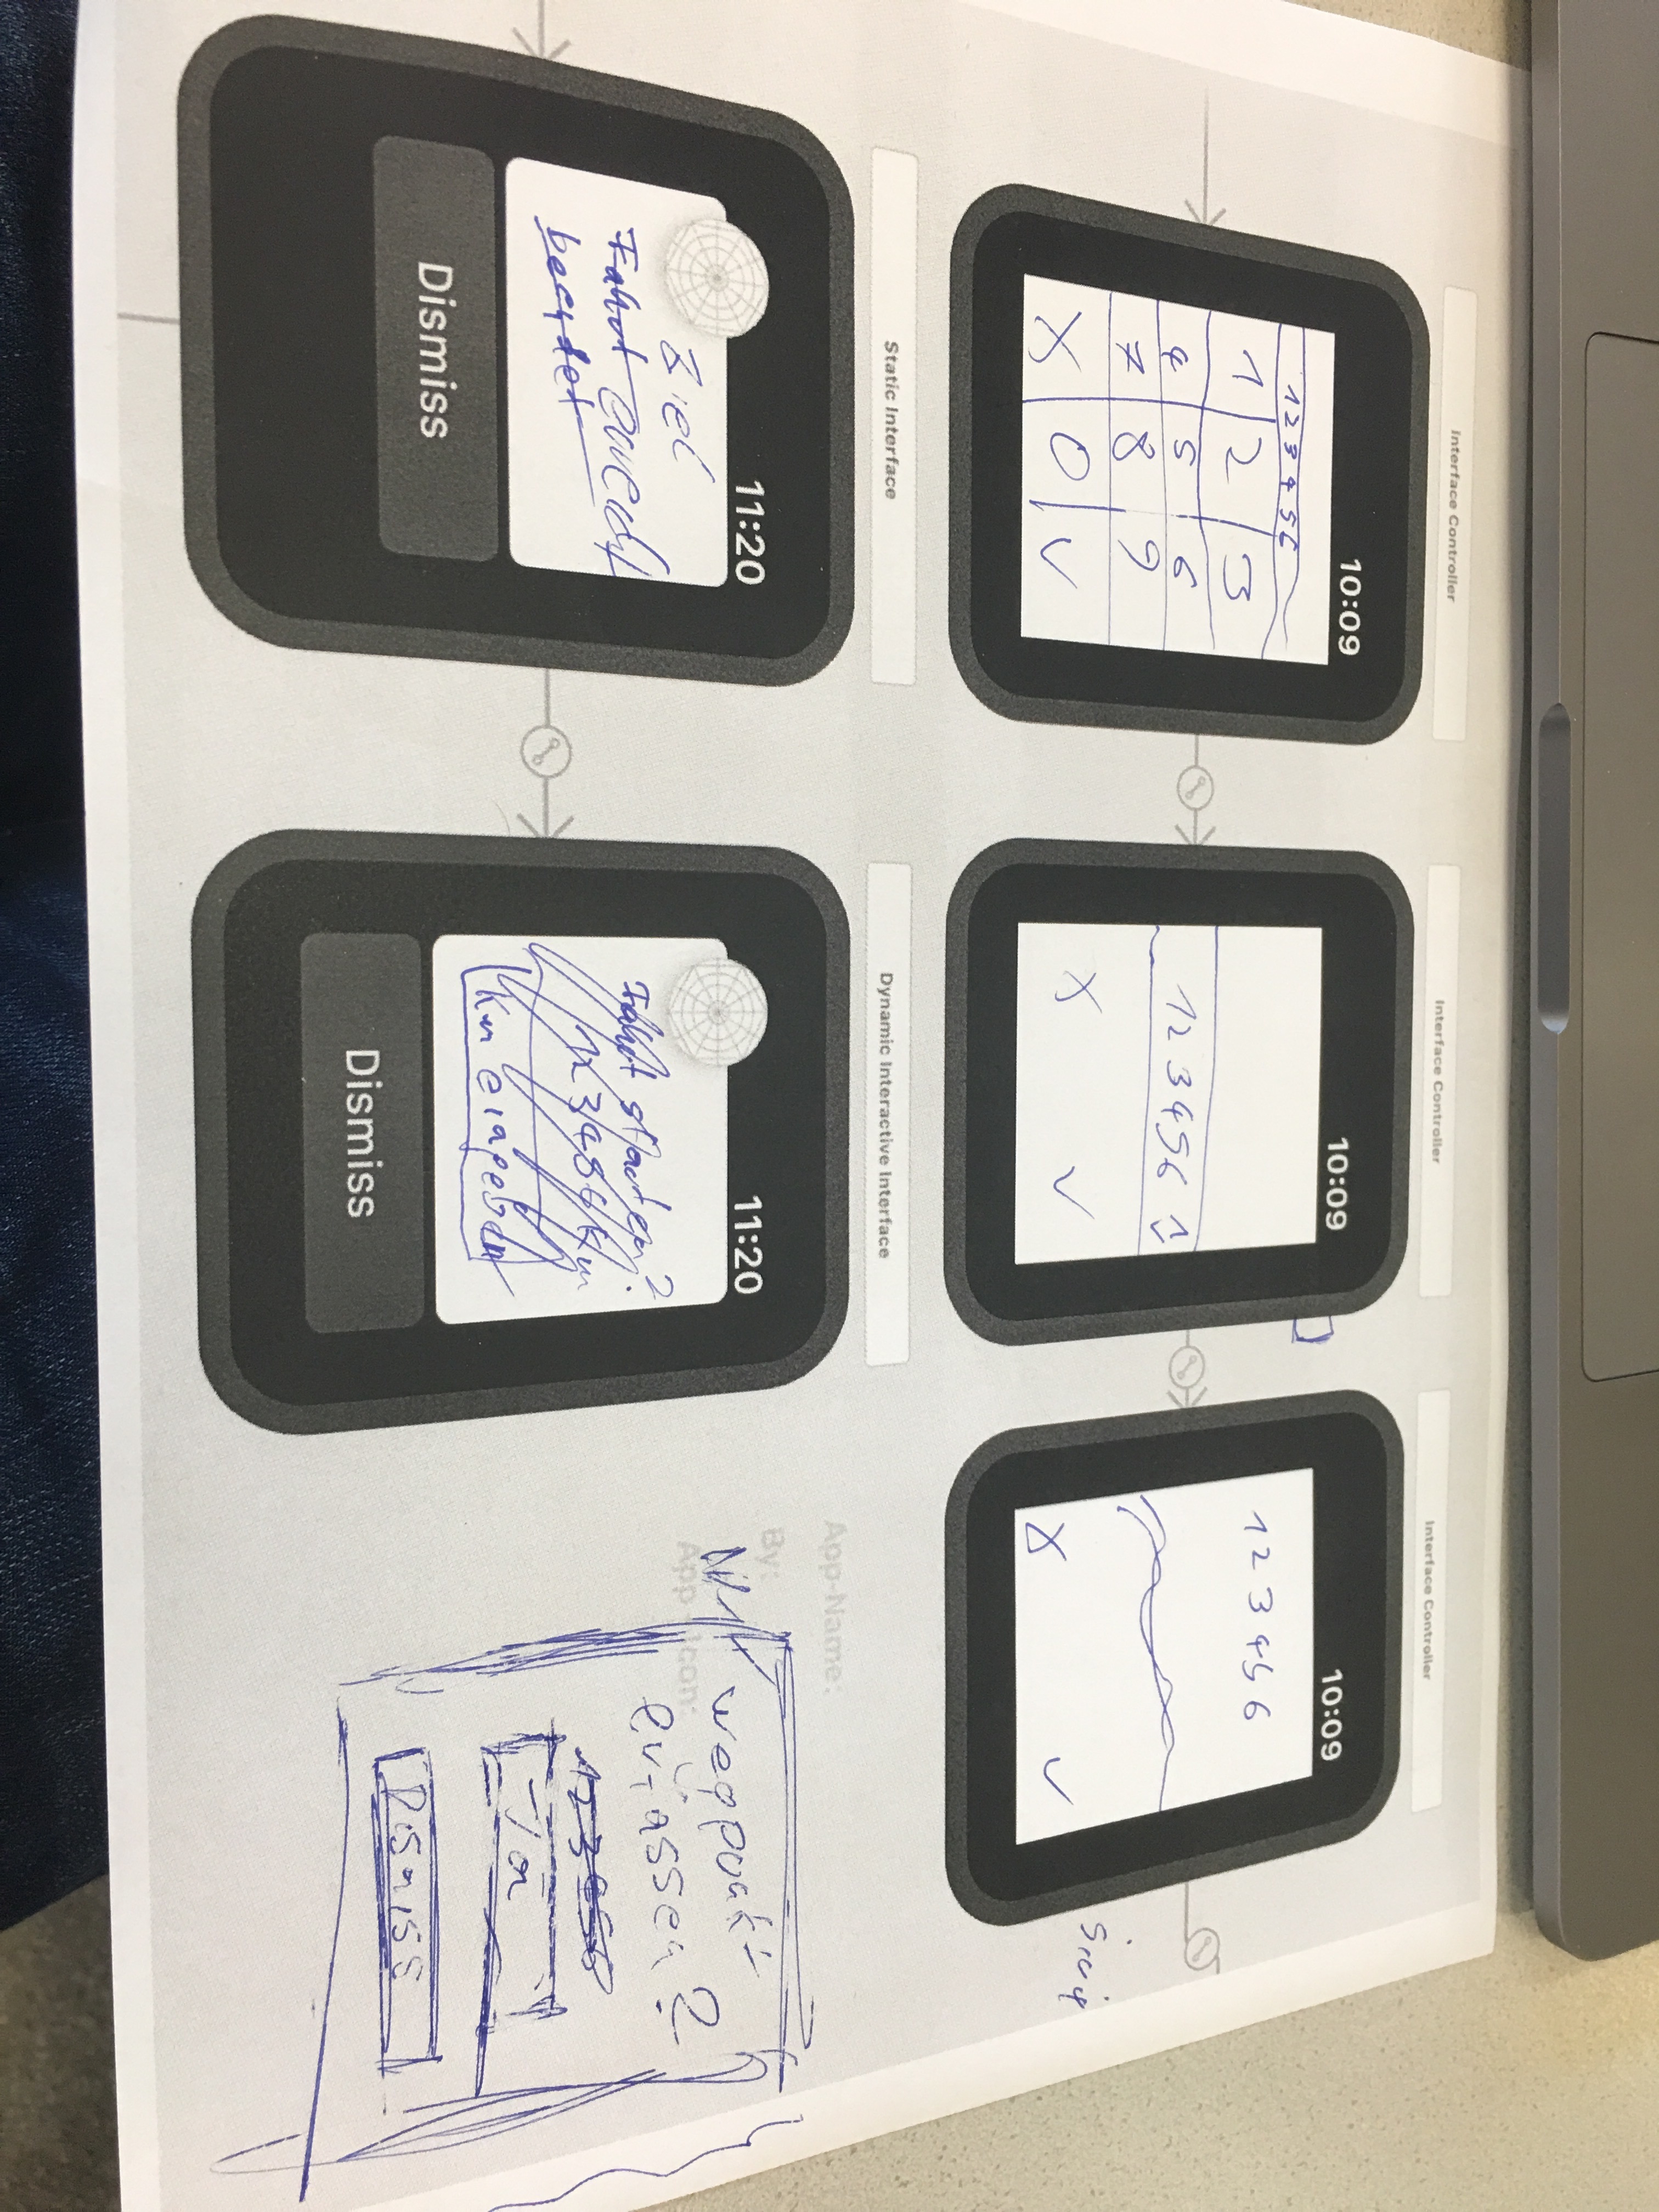 Interface Controller
10:09
123456
1 2 3
4 5 6
7 8 9
X 0 V
Interface Controller
10:09
123456
X V
Interface Controller
10:09
123456
X V
Static Interface
11:20
Ziel
Fahrt erreicht
beendet
Dismiss
Dynamic Interactive Interface
11:20
Fahrt starten?
123456 km
km eingeben
Dismiss
App-Name:
By:
App-Icon:
wegpunkt
erfassen?
123456
Ja
Dismiss